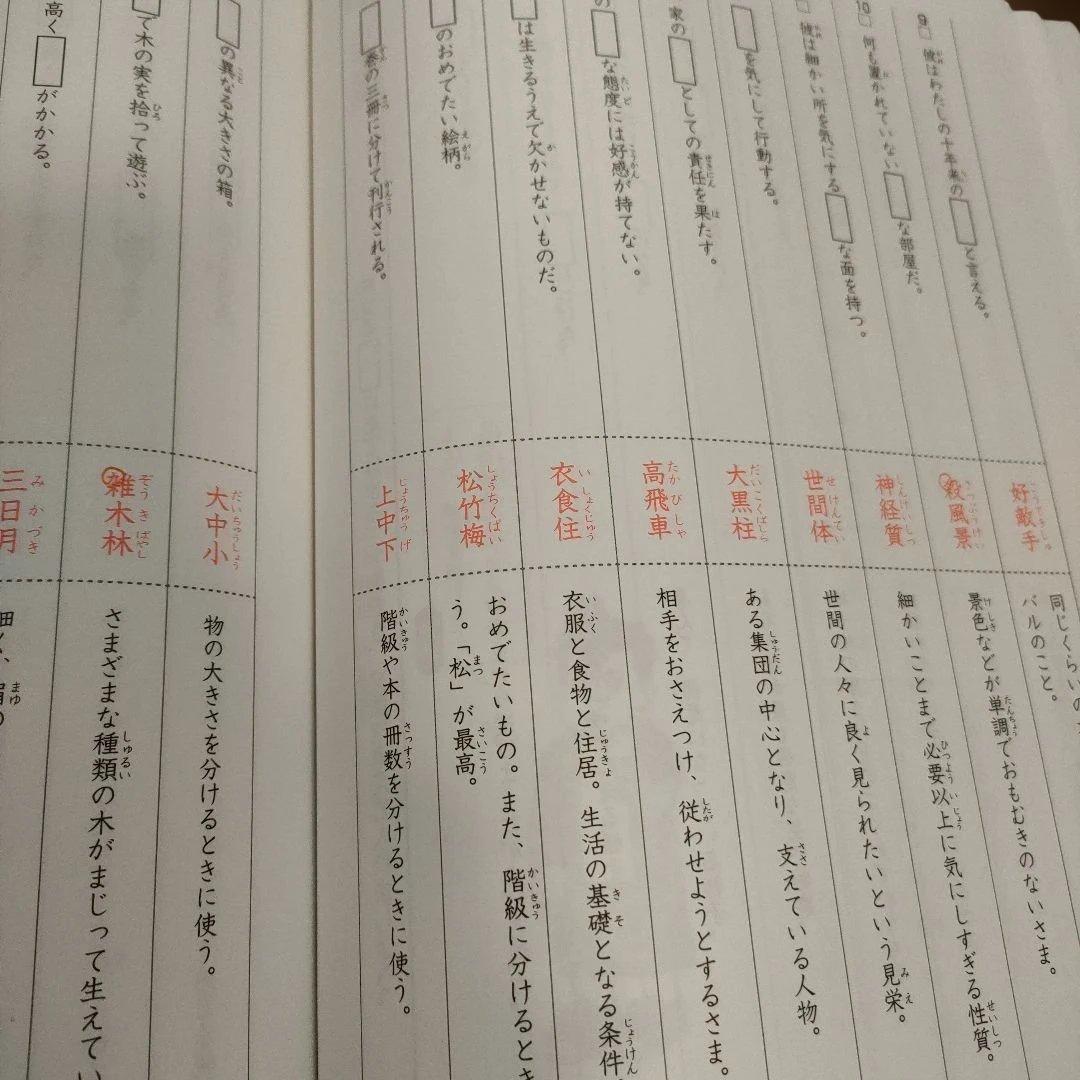 9 彼はわたしの十年来の□と言える。
好敵手
同じくらいの
バルのこと。
10 何も置かれていない□な部屋だ。
殺風景
景色などが単調でおもむきのないさま。
彼は細かい所を気にする□な面を持つ。
神経質
細かいことまで必要以上に気にしすぎる性質。
□を気にして行動する。
世間体
世間の人々に良く見られたいという見栄。
家の□としての責任を果たす。
大黒柱
ある集団の中心となり、支えている人物。
の□な態度には好感が持てない。
高飛車
相手をおさえつけ、従わせようとするさま。
□は生きるうえで欠かせないものだ。
衣食住
衣服と食物と住居。生活の基礎となる条件。
□のおめでたい絵柄。
松竹梅
おめでたいもの。また、階級に分けると
う。「松」が最高。
□巻の三冊に分けて刊行される。
上中下
階級や本の冊数を分けるときに使う。
□の異なる大きさの箱。
大中小
物の大きさを分けるときに使う。
□で木の実を拾って遊ぶ。
雑木林
さまざまな種類の木がまじって生えてい
高く□がかかる。
三日月
細く、眉の